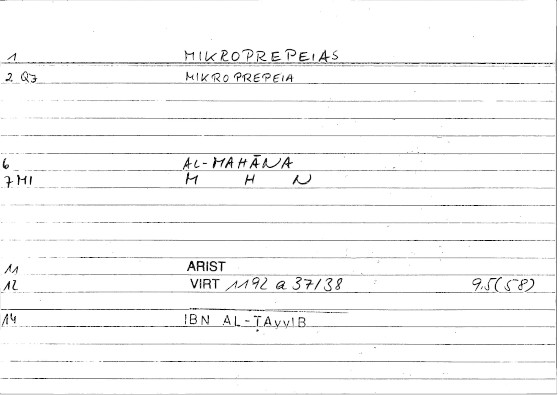 1 MIKROPREPEIAS
2 QJ MIKROPREPEIA
6 AL-MAHĀNA
7 MI M H N
11 ARIST
12 VIRT 1192 a 37/38 9.5(58)
14 IBN AL-ṬAyyIB